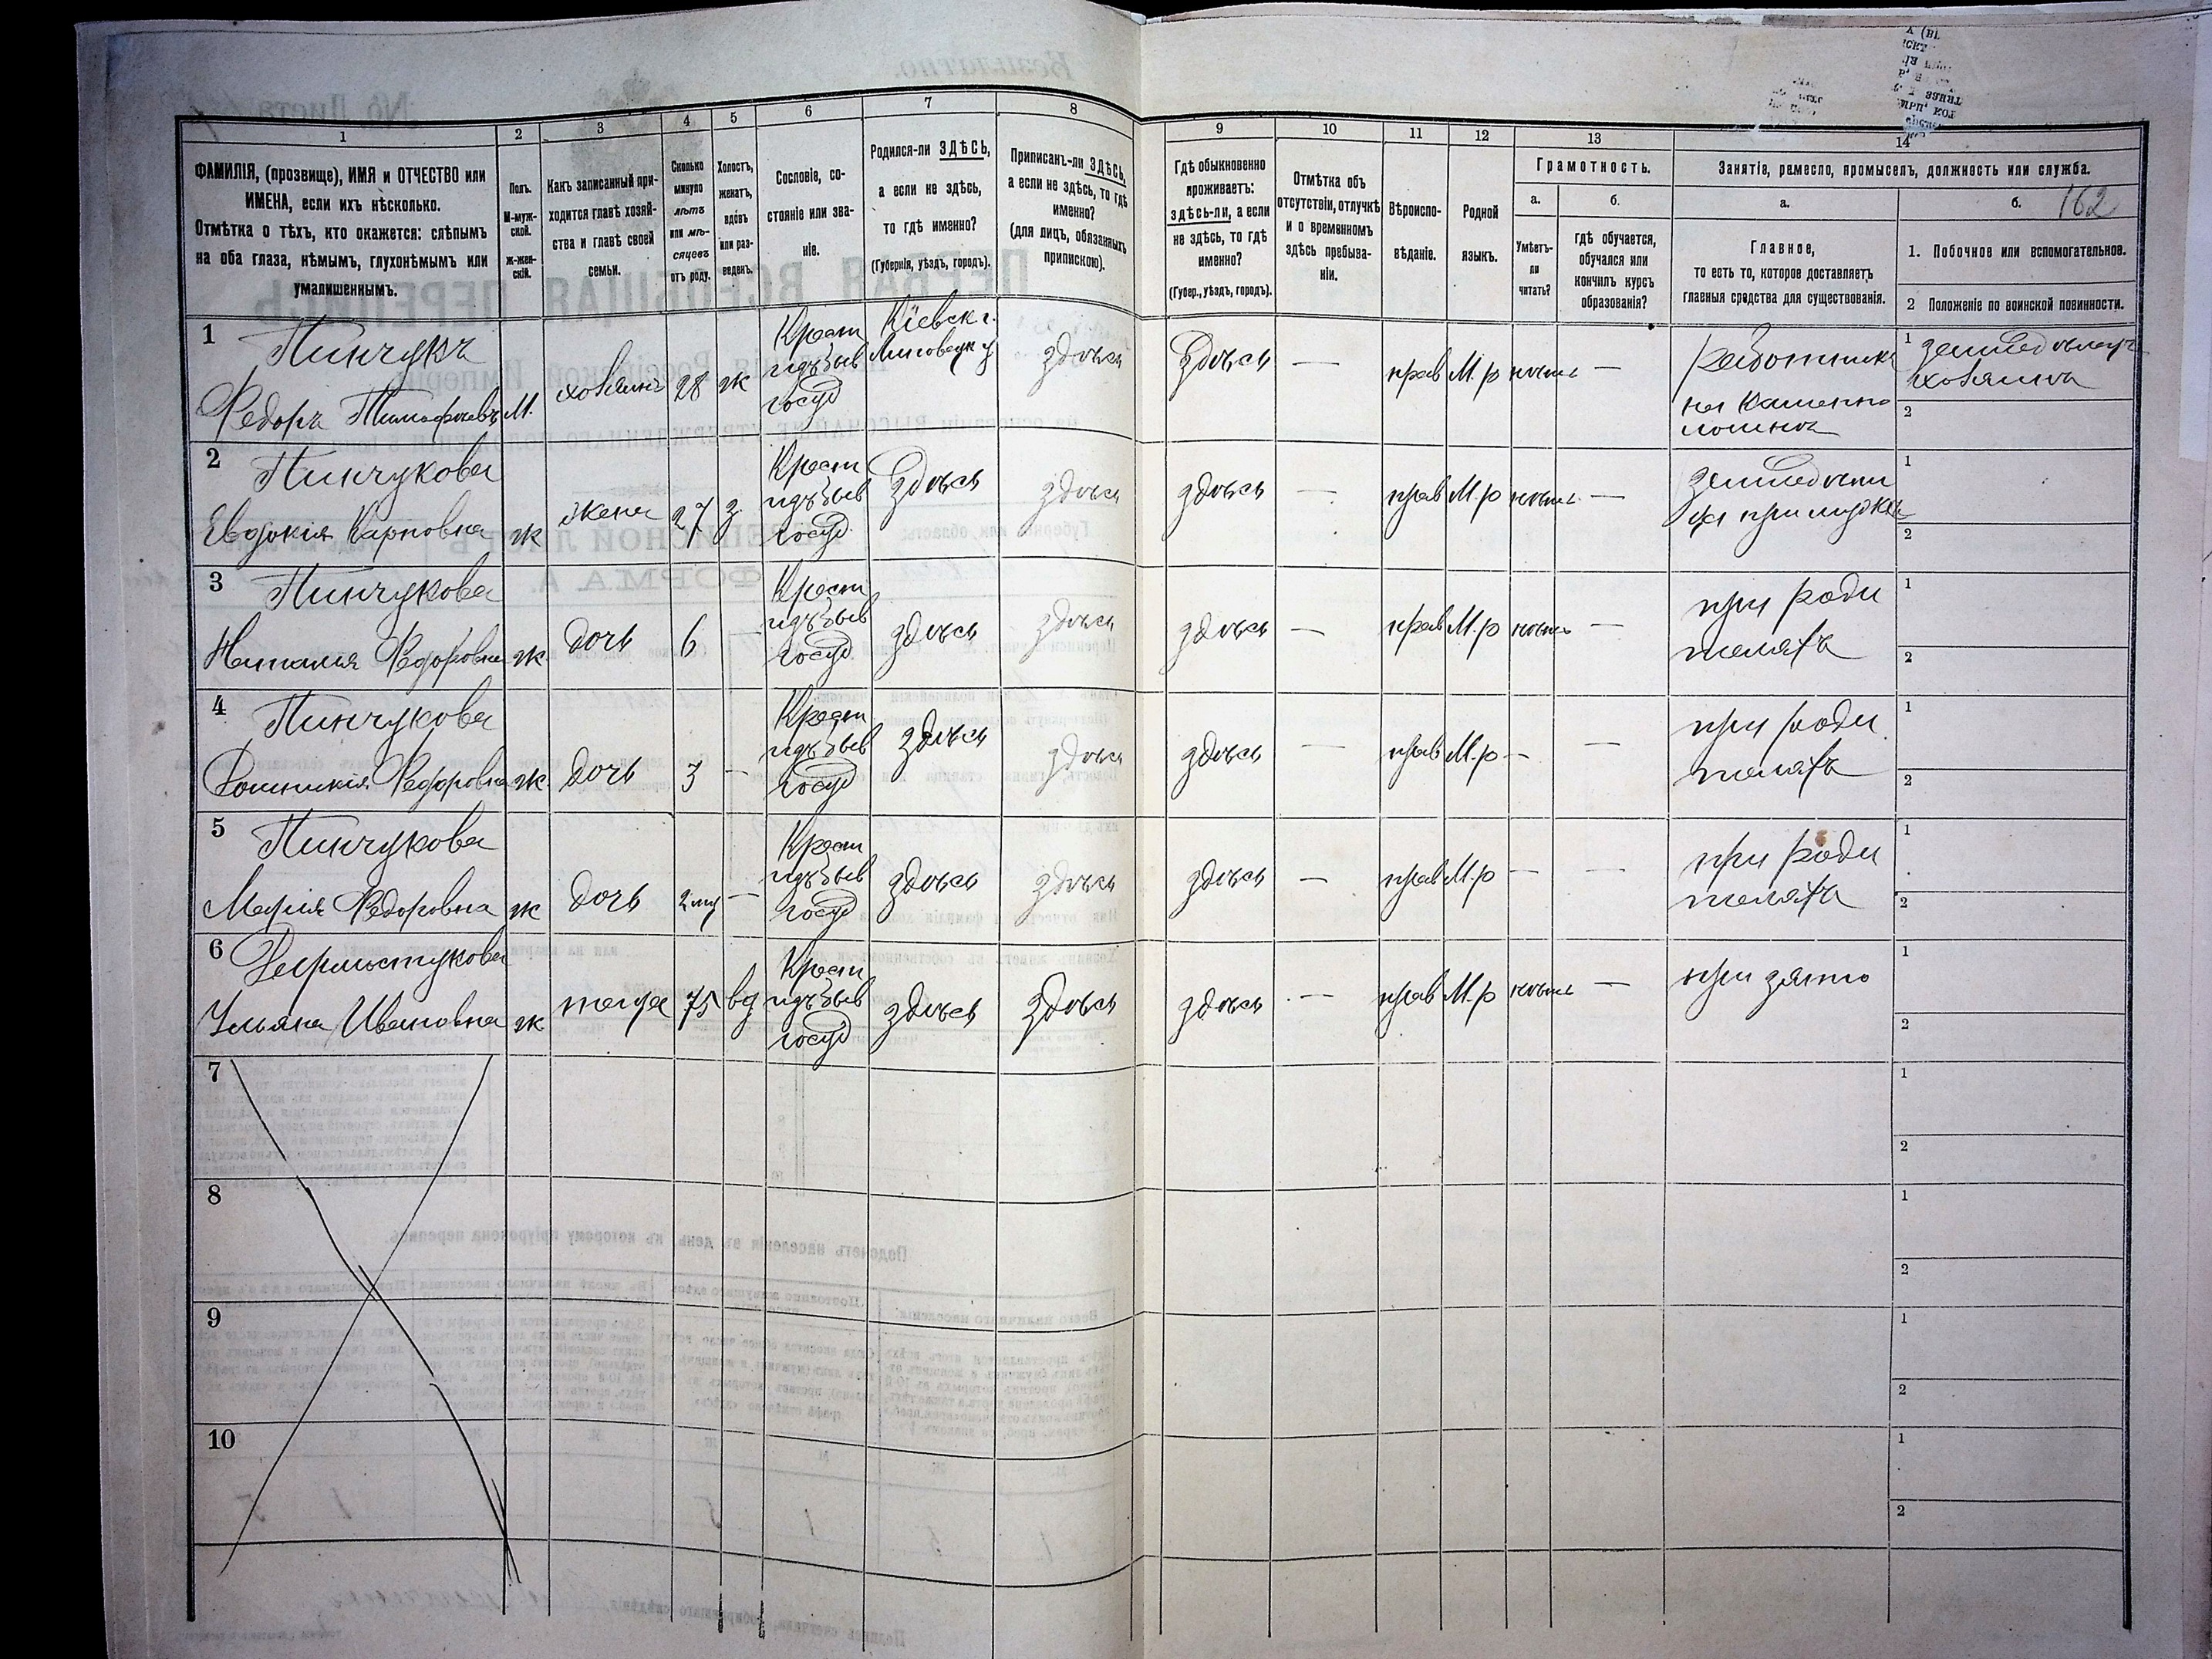 1
2
3
4
5
6
7
8
9
10
11
12
13
14
ФАМИЛІЯ, (прозвище), ИМЯ и ОТЧЕСТВО или
ИМЕНА, если ихъ нѣсколько.
Отмѣтка о тѣхъ, кто окажется: слѣпымъ
на оба глаза, нѣмымъ, глухонѣмымъ или
умалишеннымъ.
Полъ.
М-муж-
ской.
ж-жен-
скій.
Какъ записанный при-
ходится главѣ хозяй-
ства и главѣ своей
семьи.
Сколько
минуло
лѣтъ
или мѣ-
сяцевъ
отъ роду.
Холостъ,
женатъ,
вдовъ
или раз-
веденъ.
Сословіе, со-
стояніе или зва-
ніе.
Родился-ли ЗДѢСЬ,
а если не здѣсь,
то гдѣ именно?
(Губернія, уѣздъ, городъ).
Приписанъ-ли ЗДѢСЬ,
а если не здѣсь, то гдѣ
именно?
(для лицъ, обязанныхъ
припискою).
Гдѣ обыкновенно
проживаетъ:
здѣсь-ли, а если
не здѣсь, то гдѣ
именно?
(Губер., уѣздъ, городъ).
Отмѣтка объ
отсутствіи, отлучкѣ
и о временномъ
здѣсь пребыва-
ніи.
Вѣроиспо-
вѣданіе.
Родной
языкъ.
Грамотность.
а.
б.
Умѣетъ-
ли
читать?
гдѣ обучается,
обучался или
кончилъ курсъ
образованія?
Занятія, ремесло, промыселъ, должность или служба.
а.
б.
162
Главное,
то есть то, которое доставляетъ
главныя средства для существованія.
1. Побочное или вспомогательное.
2 Положеніе по воинской повинности.
1
Пинчукъ
Федоръ Тимофѣевъ
М.
хозяинъ
28
ж
Крест
изъ быв
госуд
Кіевск г.
здѣсь
Здѣсь
—
прав
М.р
нѣтъ
—
Работникъ
на каменно
ломнѣ
1
2
2
Пинчукова
Евдокія Карповна
ж
жена
27
з
Крест
изъ быв
госуд
Здѣсь
здѣсь
здѣсь
—
прав
М.р
нѣтъ
—
при мужѣ
1
2
3
Пинчукова
Наталія Федоровна
ж
дочь
6
Крест
изъ быв
госуд
здѣсь
здѣсь
здѣсь
—
прав
М.р
нѣтъ
—
при роди
теляхъ
1
2
4
Пинчукова
Домникія Федоровна
ж
дочь
3
—
Крест
изъ быв
госуд
здѣсь
здѣсь
здѣсь
—
прав
М.р
—
—
при роди
теляхъ
1
2
5
Пинчукова
Марія Федоровна
ж
дочь
—
Крест
изъ быв
госуд
здѣсь
здѣсь
здѣсь
—
прав
М.р
—
—
при роди
теляхъ
1
2
6
Ульяна Ивановна
ж
теща
75
вд
Крест
изъ быв
госуд
здѣсь
здѣсь
здѣсь
—
прав
М.р
нѣтъ
—
при зятѣ
1
2
7
1
2
8
1
2
9
1
2
10
1
2